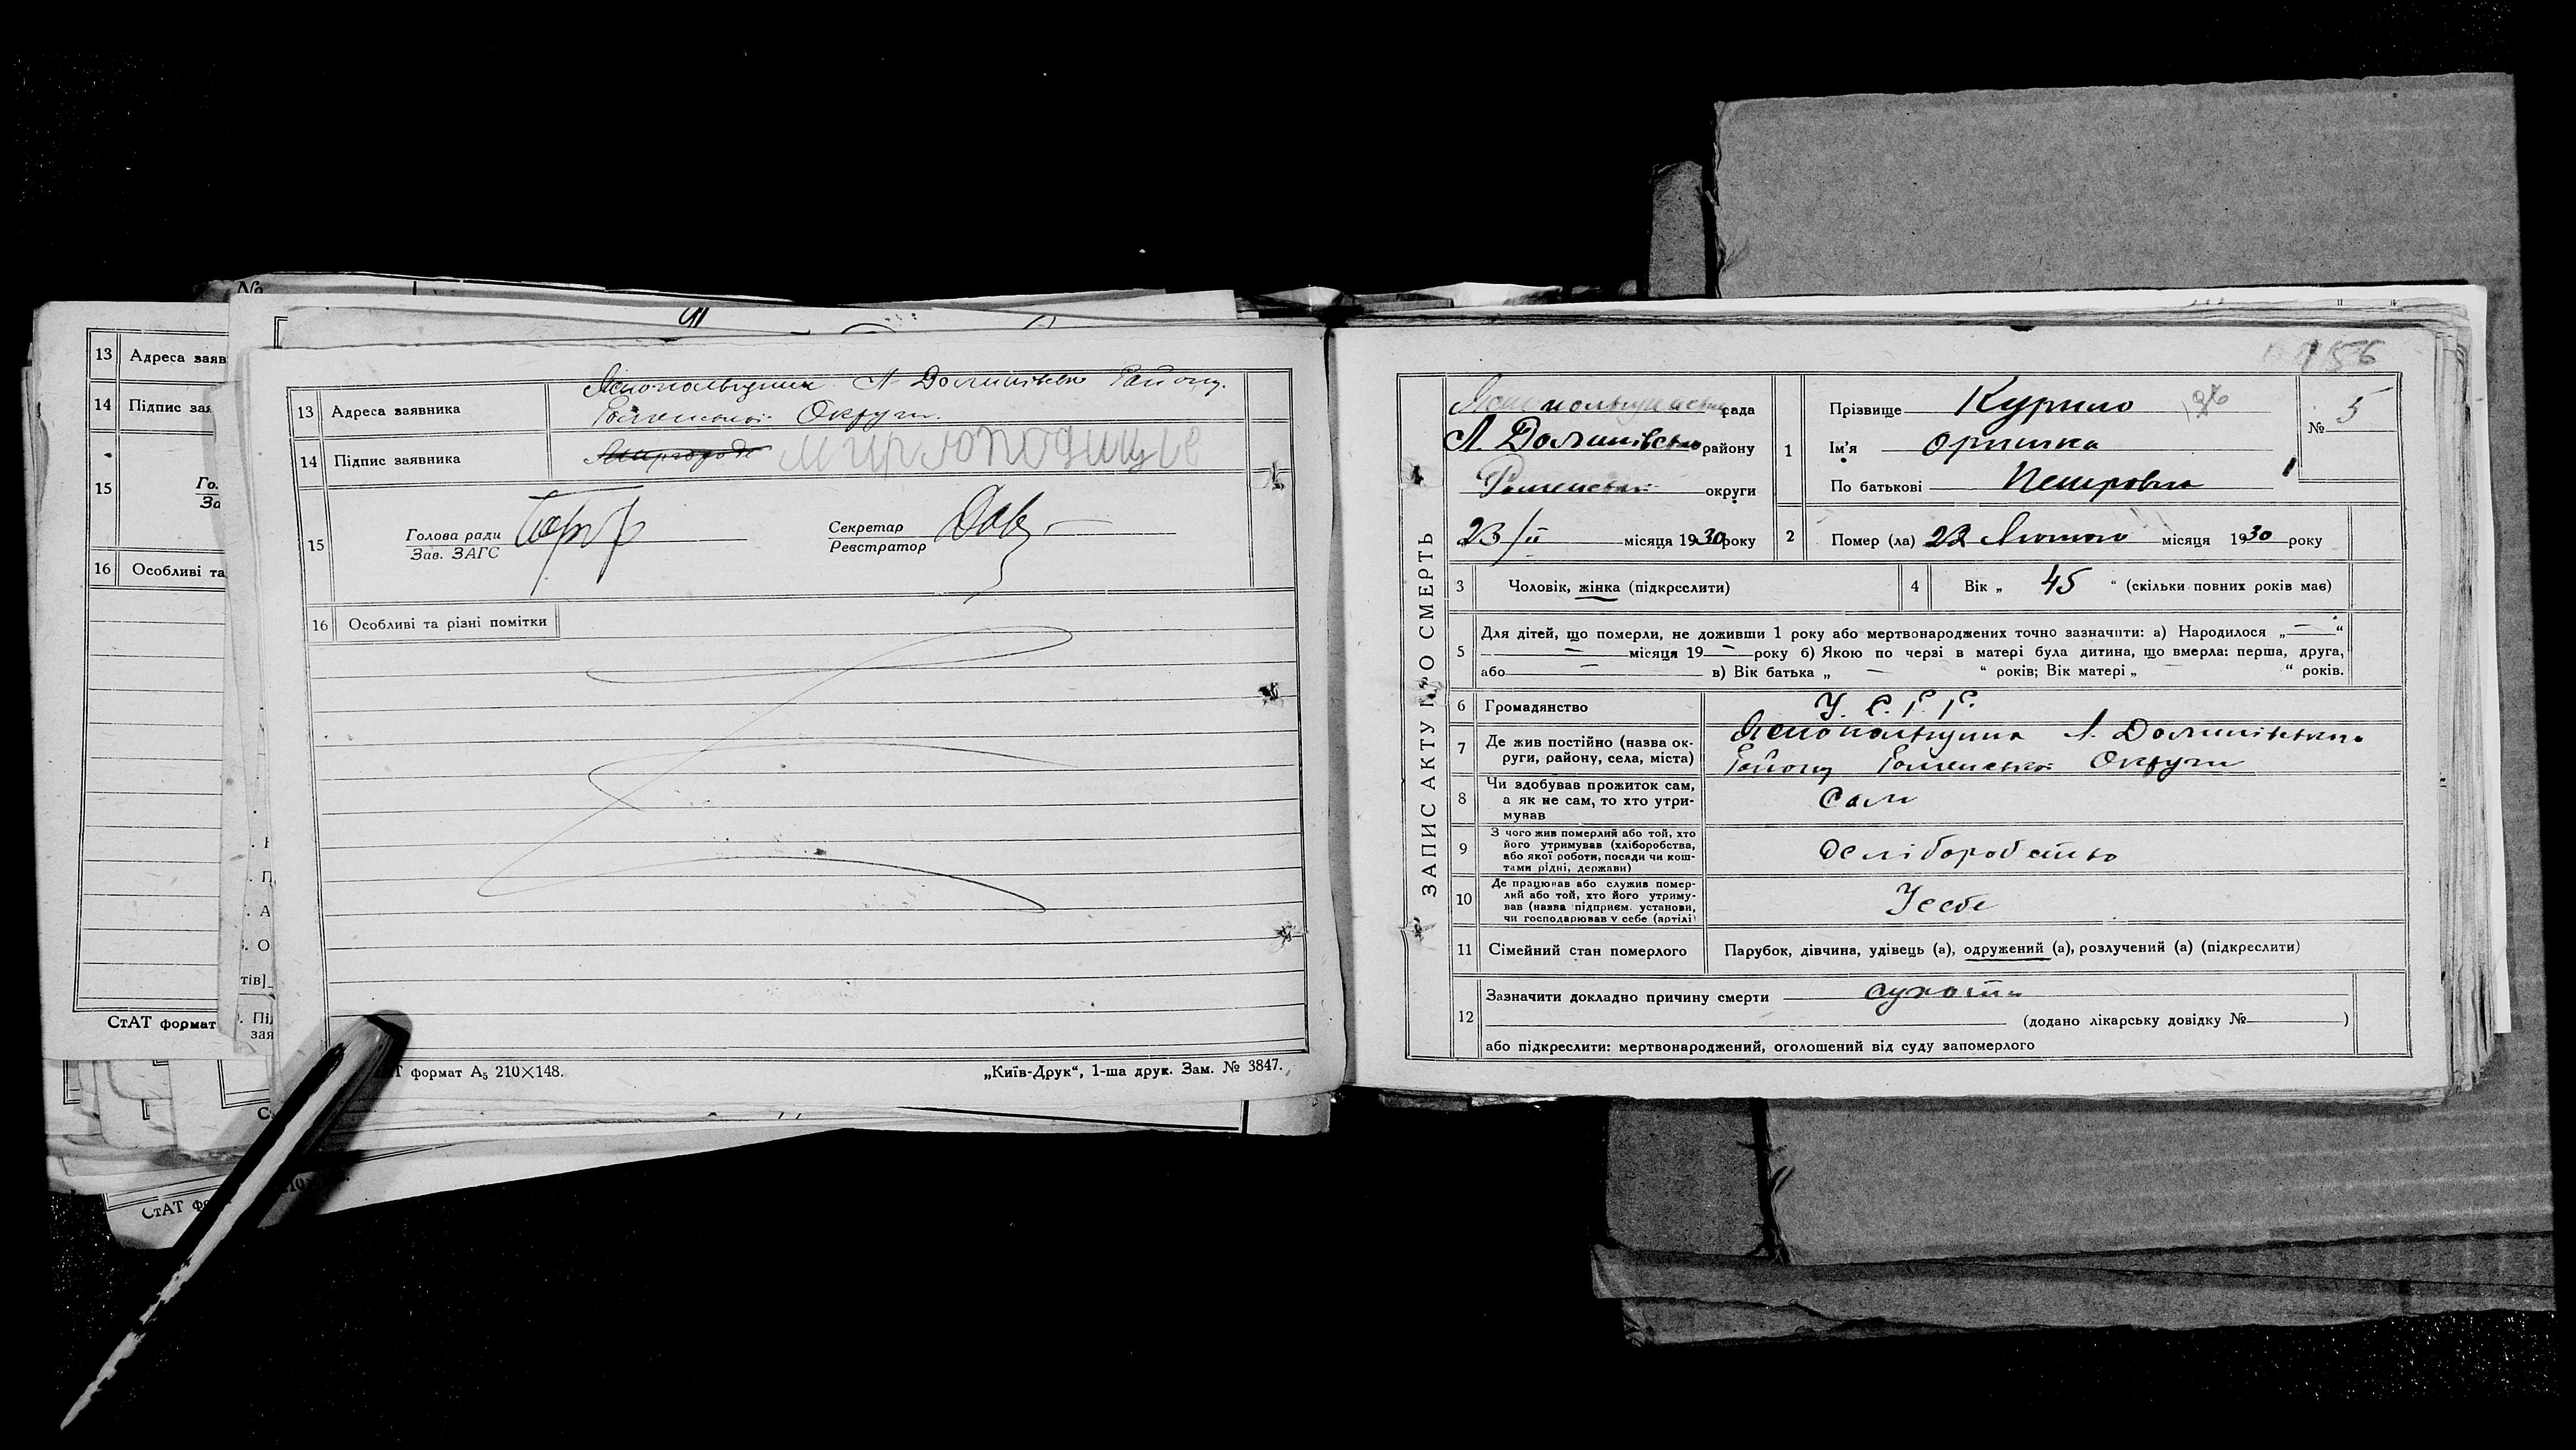 13 Адреса заяв
14 Підпис зая
15 Го.
За
16 Особливі та
СтАТ формат
13 Адреса заявника Яснопольщина Л Долинівсько Району
Роменської Округи.
14 Підпис заявника
15 Голова ради
Зав. ЗАГС
Секретар
Реєстратор
16 Особливі та різні помітки
формат А₅ 210×148.
„Київ-Друк“, 1-ша друк. Зам. № 3847.
156
ЗАПИС АКТУ ПРО СМЕРТЬ
рада
Л. Долинівсько району
Роменської округи
„23/II місяця 1930 року
1 Прізвище Курило
Ім'я Оришка
По батькові Петровна
№ 5
2 Помер (ла) 22 Лютого місяця 1930 року
3 Чоловік, жінка (підкреслити)
4 Вік „ 45 “ (скільки повних років має)
5 Для дітей, що померли, не доживши 1 року або мертвонароджених точно зазначити: а) Народилося „ — “
— місяця 19 — року б) Якою по черзі в матері була дитина, що вмерла: перша, друга,
або — в) Вік батька „ — “ років; Вік матері „ — “ років.
6 Громадянство У. С. Р. Р.
7 Де жив постійно (назва ок-
руги, району, села, міста)
Яснопольщина Л. Долинівського
Району Роменської Округи
8 Чи здобував прожиток сам,
а як не сам, то хто утри-
мував
Сам
9 З чого жив померлий або той, хто
його утримував (хліборобства,
або якої роботи, посади чи кош-
тами рідні, держави)
Хліборобство
10 Де працював або служив помер-
лий або той, хто його утриму-
вав (назва підприєм. установи,
чи господарював у себе (артілі)
У себе
11 Сімейний стан померлого Парубок, дівчина, удівець (а), одружений (а), розлучений (а) (підкреслити)
12 Зазначити докладно причину смерти сухоти
(додано лікарську довідку № )
або підкреслити: мертвонароджений, оголошений від суду запомерлого